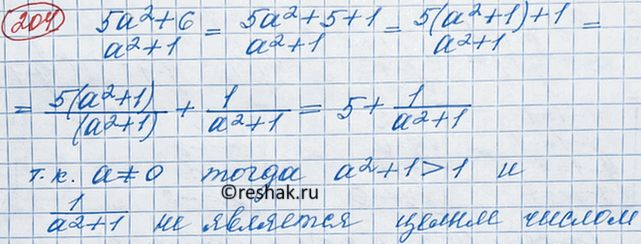 204 5a²+6 / a²+1 = 5a²+5+1 / a²+1 = 5(a²+1)+1 / a²+1 =
= 5(a²+1) / (a²+1) + 1 / a²+1 = 5 + 1 / a²+1
т.к. a≠0 тогда a²+1>1 и
©reshak.ru
1 / a²+1 не является целым числом